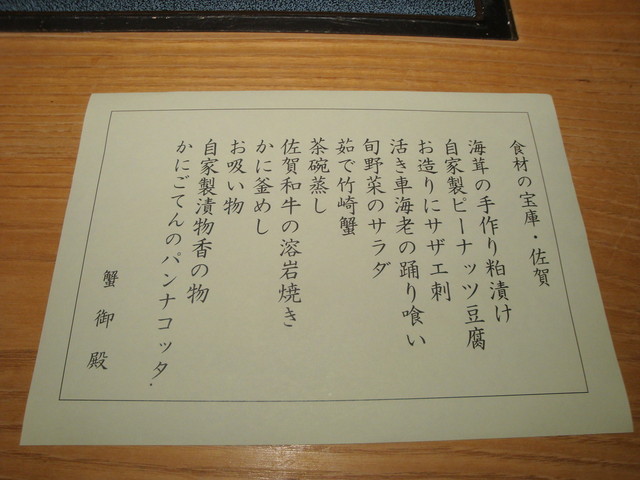 食材の宝庫・佐賀
海茸の手作り粕漬け
自家製ピーナッツ豆腐
お造りにサザエ刺
活き車海老の踊り喰い
旬野菜のサラダ
茹で竹崎蟹
茶碗蒸し
佐賀和牛の溶岩焼き
かに釜めし
お吸い物
自家製漬物香の物
かにごてんのパンナコッタ.
蟹御殿